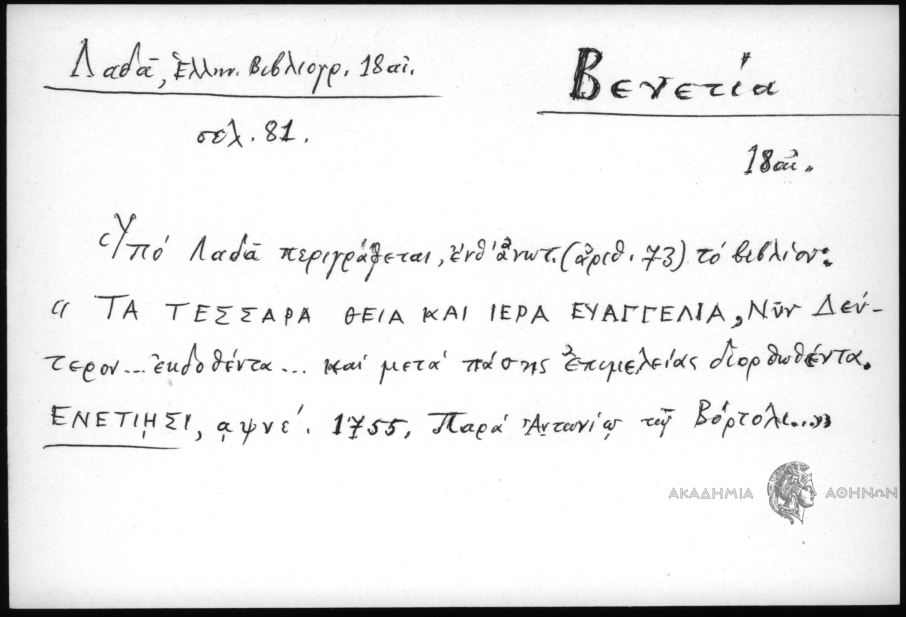 Λαδᾶ, Ἑλλην. Βιβλιογρ. 18 αἰ.
Βενετία
σελ. 81.
18 αἰ.
Ὑπό Λαδᾶ περιγράφεται, ἐνθ' ἀνωτ. (ἀριθ. 73) τό βιβλίον:
« ΤΑ ΤΕΣΣΑΡΑ ΘΕΙΑ ΚΑΙ ΙΕΡΑ ΕΥΑΓΓΕΛΙΑ, Νῦν Δεύ-
τερον... ἐκδοθέντα... καί μετά πάσης ἐπιμελείας διορθωθέντα.
ΕΝΕΤΙῌΣΙ, αψνέ. 1755, Παρά Ἀντωνίῳ τῷ Βόρτολι...»
ΑΚΑΔΗΜΙΑ ΑΘΗΝΩΝ